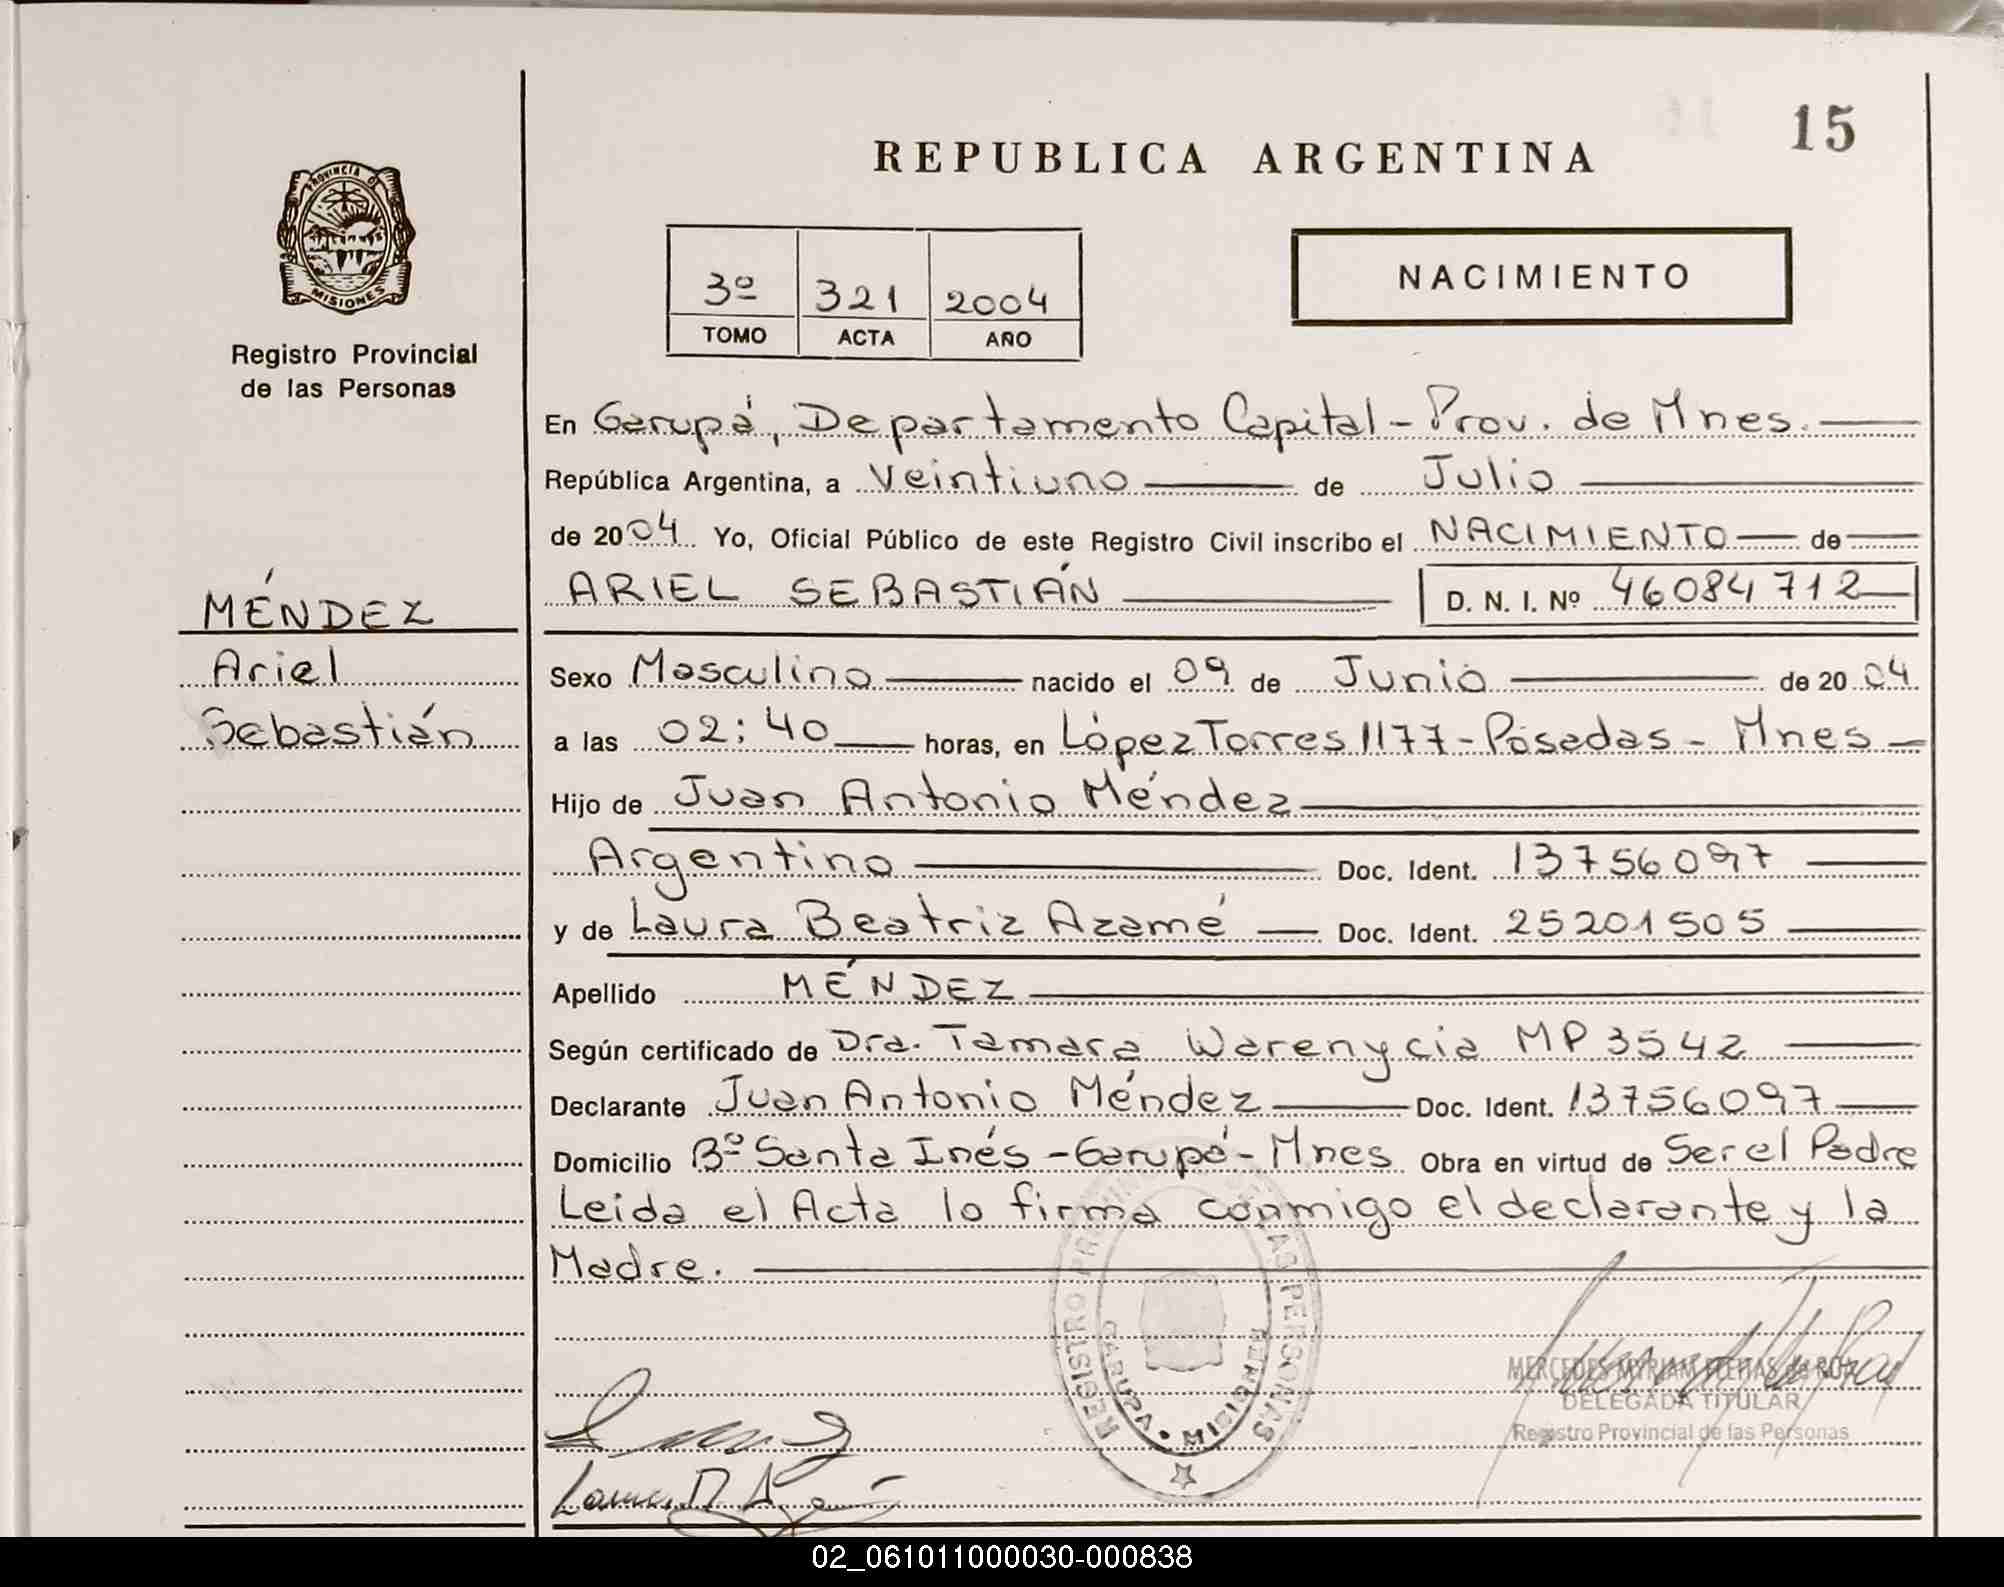 15
REPUBLICA ARGENTINA
PROVINCIA DE
MISIONES
Registro Provincial
de las Personas
3º 321 2004
TOMO ACTA AÑO
NACIMIENTO
En Garupá, Departamento Capital - Prov. de Mnes.
República Argentina, a Veintiuno de Julio
de 2004 Yo, Oficial Público de este Registro Civil inscribo el NACIMIENTO de
ARIEL SEBASTIÁN D. N. I. Nº 46084712
MÉNDEZ
Ariel
Sebastián
Sexo Masculino nacido el 09 de Junio de 2004
a las 02:40 horas, en López Torres 1177 - Posadas - Mnes
Hijo de Juan Antonio Méndez
Argentino Doc. Ident. 13756097
y de Laura Beatriz Azamé Doc. Ident. 25201505
Apellido MÉNDEZ
Según certificado de Dra. Tamara Warenycia MP 3542
Declarante Juan Antonio Méndez Doc. Ident. 13756097
Domicilio Bº Santa Inés - Garupá - Mnes Obra en virtud de Ser el Padre
Leida el Acta lo firma conmigo el declarante y la
Madre.
REGISTRO PROVINCIAL DE LAS PERSONAS
GARUPA • MISIONES
MERCEDES MYRIAM FLEITAS de ROA
DELEGADA TITULAR
Registro Provincial de las Personas
02_061011000030-000838